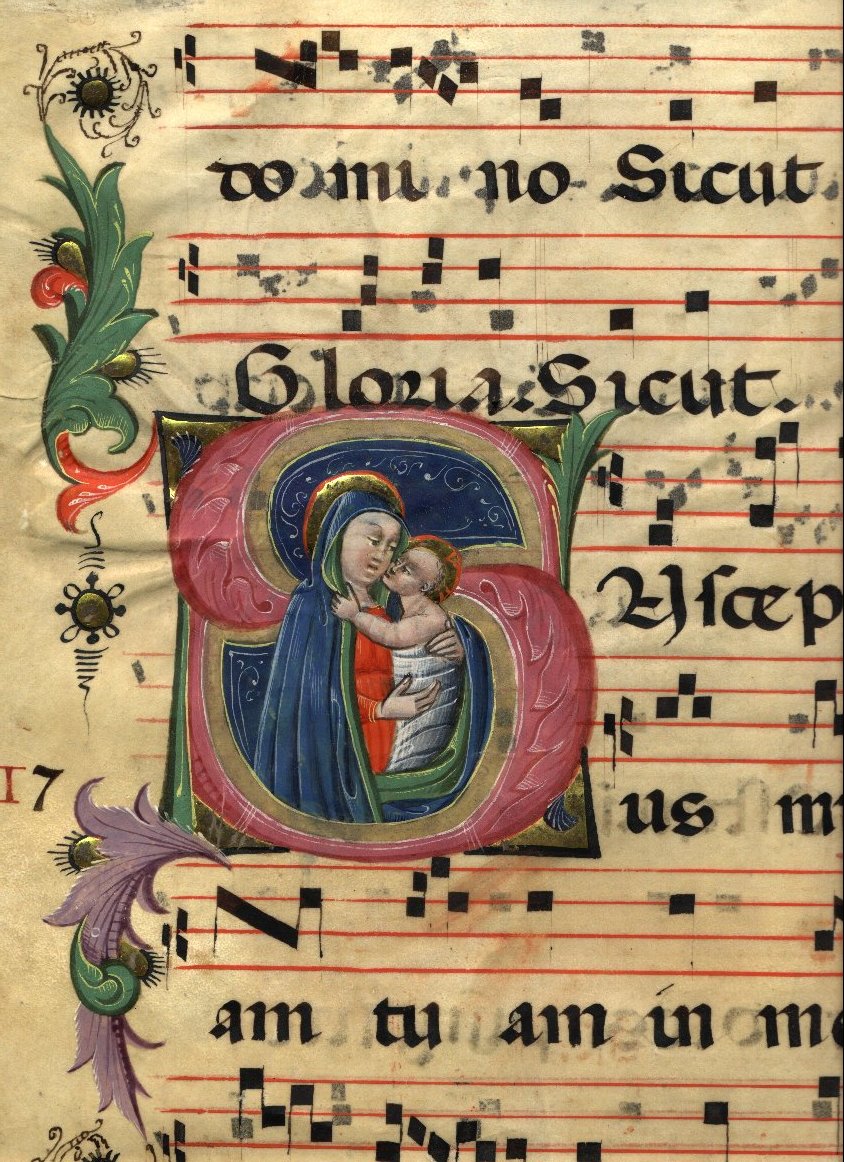 do mi no Sicut.
Gloria. Sicut.
S Uscep
17
us mi
am tu am in me